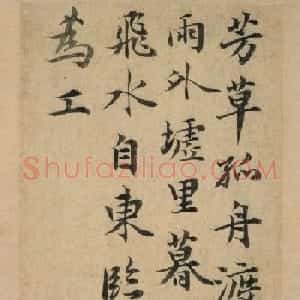 芳草孤舟渡
雨外墟里暮
飛水自東臨
為工
Shufaziliao.COM